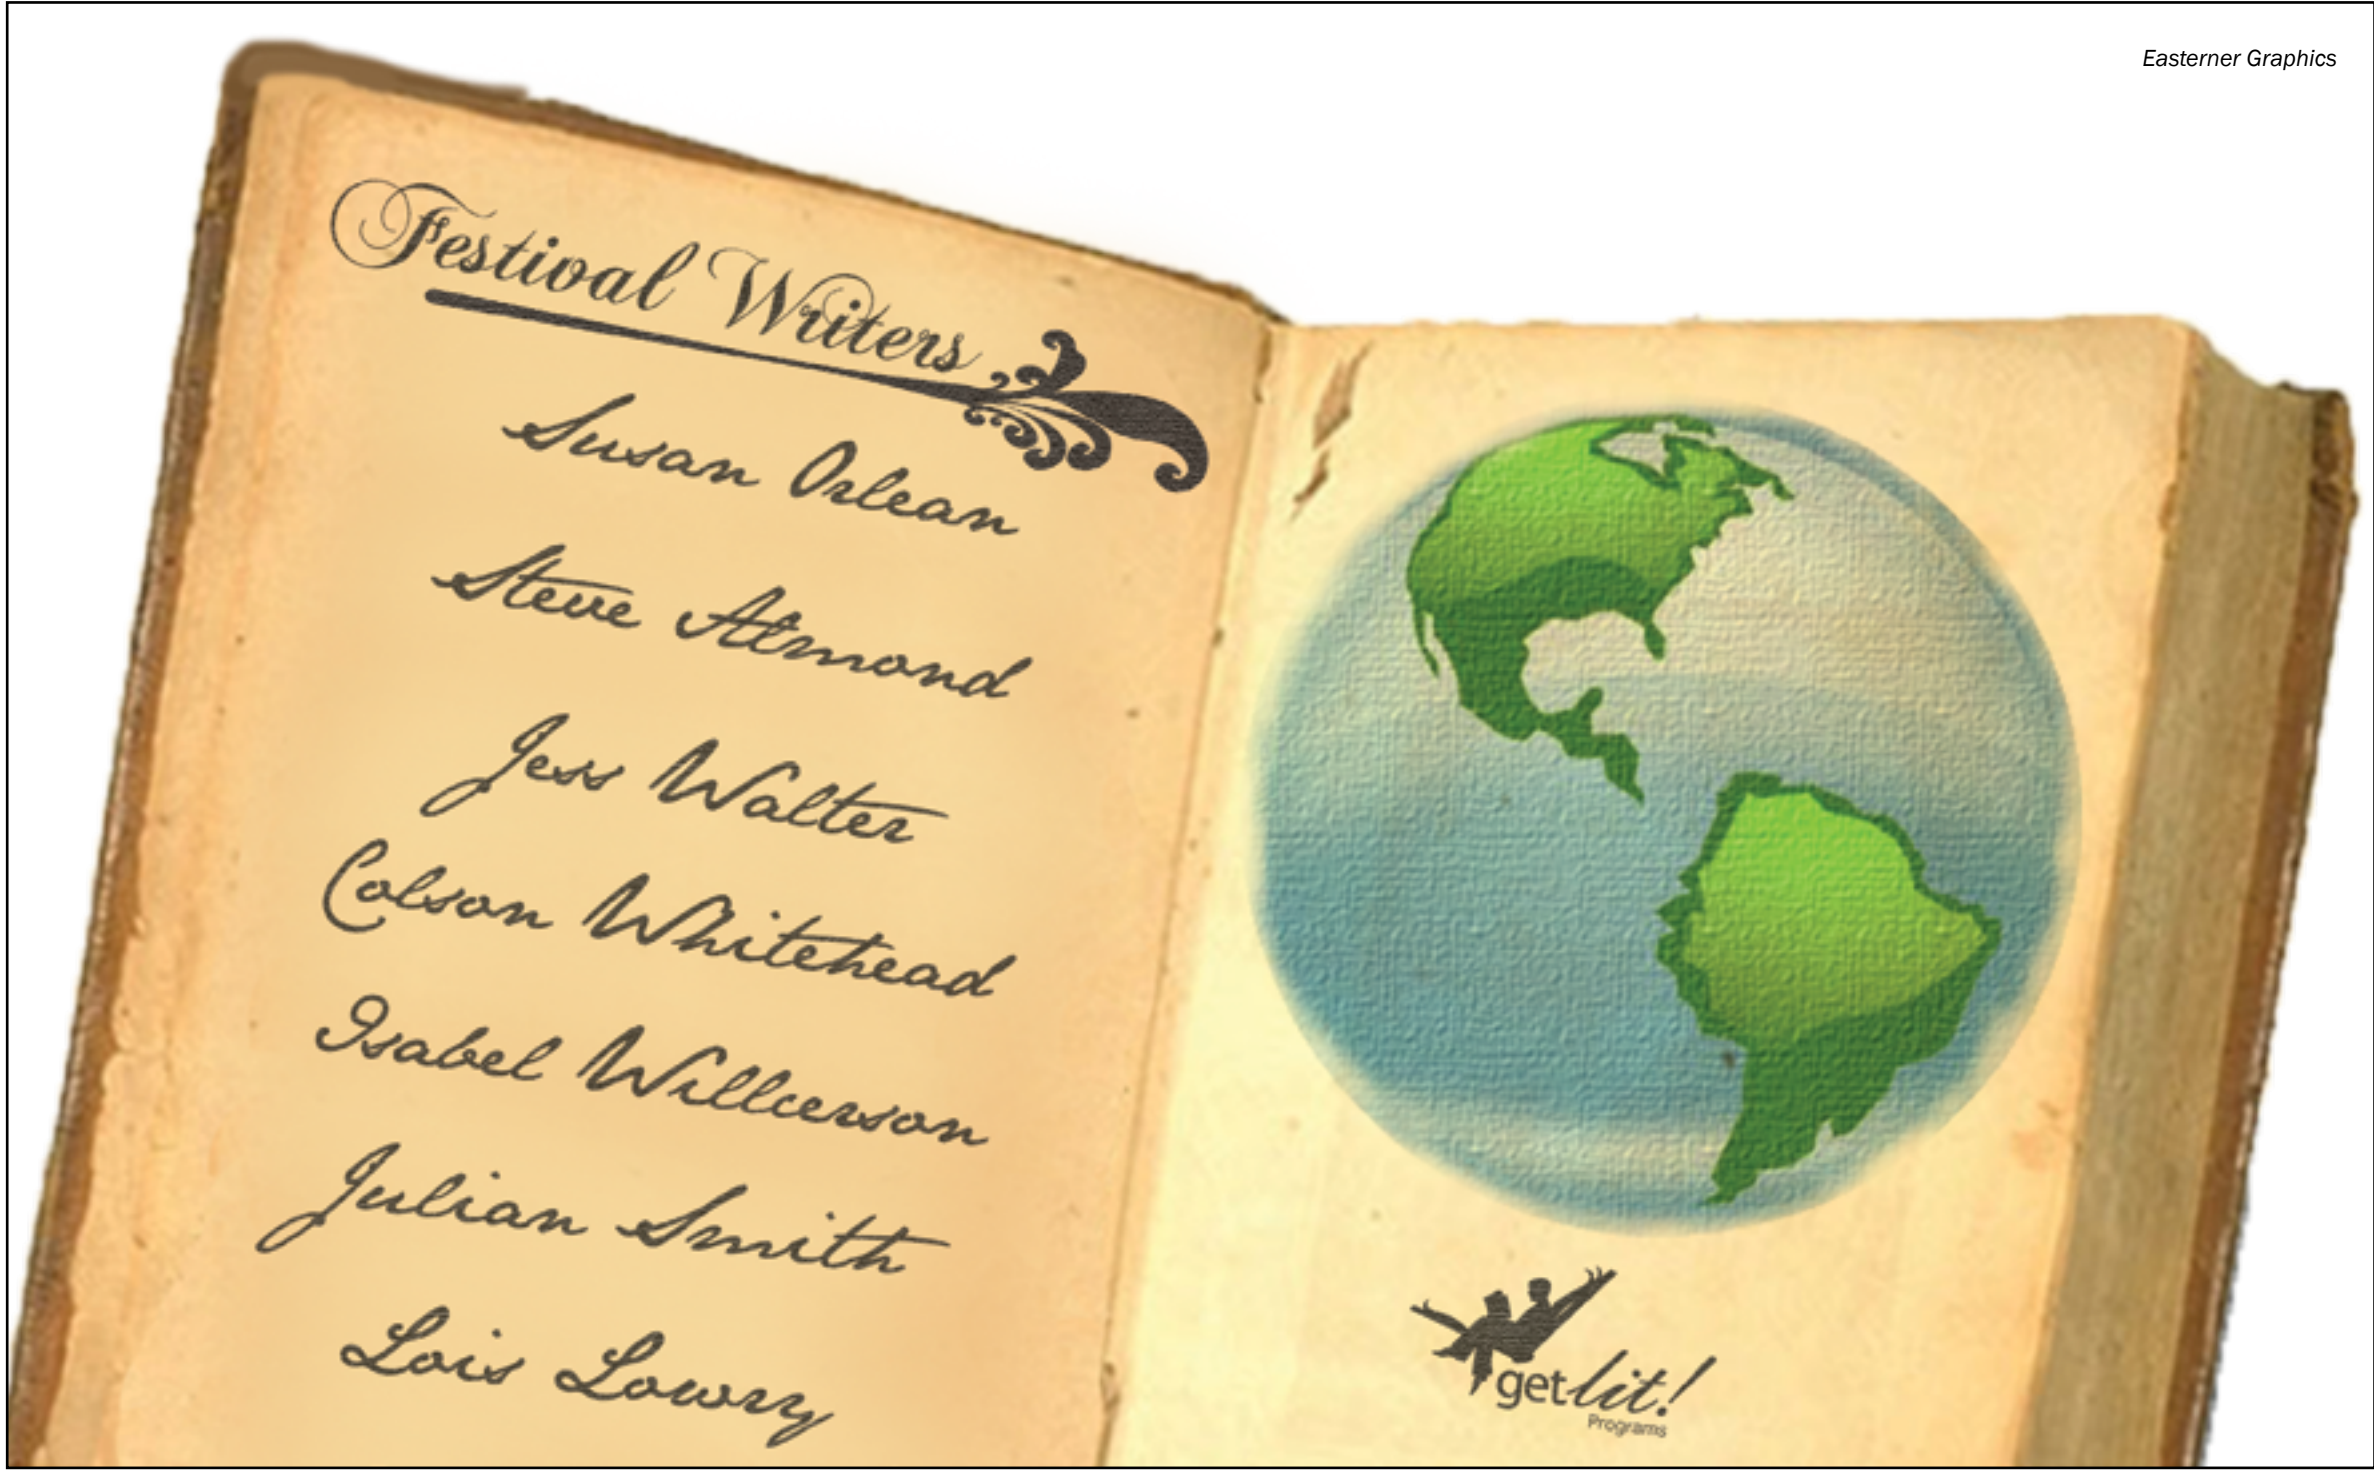 Easterner Graphics
Festival Writers
Susan Orlean
Steve Almond
Jess Walter
Colson Whitehead
Isabel Wilkerson
Julian Smith
Lois Lowry
get lit!
Programs